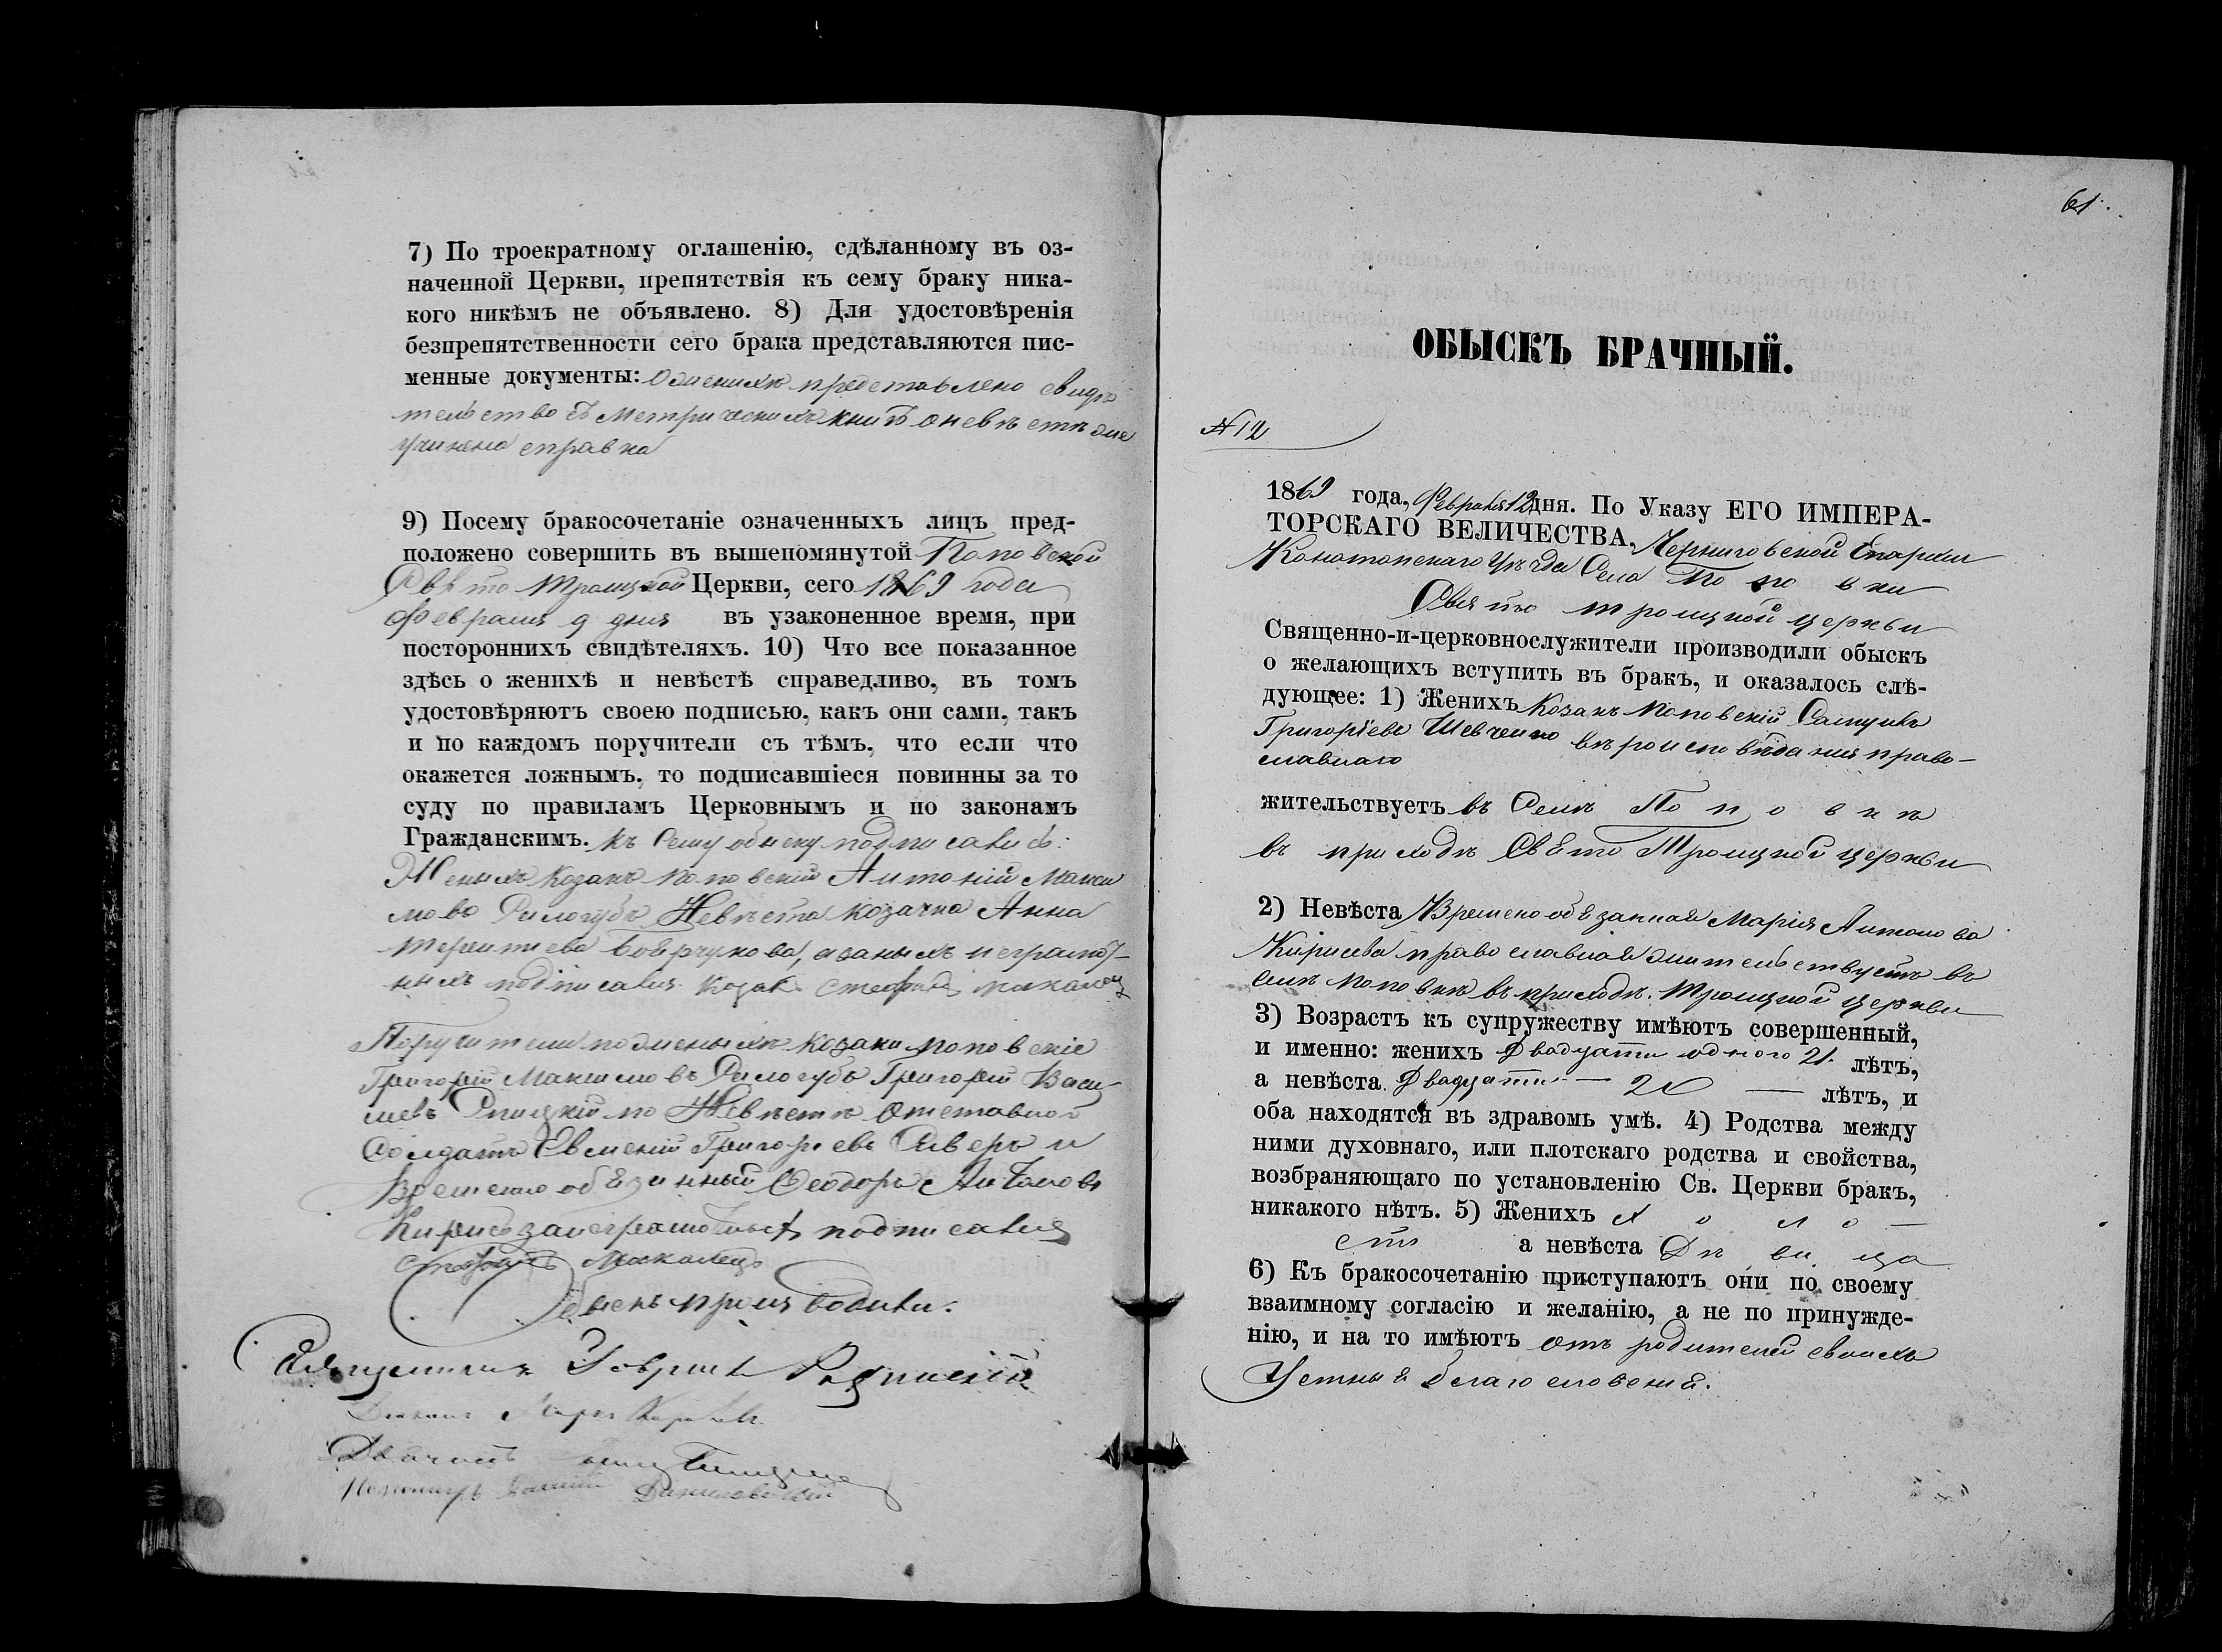 7) По троекратному оглашенію, сдѣланному въ оз-
наченной Церкви, препятствія къ сему браку ника-
кого никѣмъ не объявлено. 8) Для удостовѣренія
безпрепятственности сего брака представляются пис-
менные документы: О женихѣ представлено свидѣ
тельство съ Метрическихъ книгъ о невѣстѣ же
учинена справка
9) Посему бракосочетаніе означенныхъ лицъ пред-
положено совершить въ вышепомянутой Поповской
Свято Троицкой Церкви, сего 1869 года
Февраля 9 дня въ узаконенное время, при
постороннихъ свидѣтеляхъ. 10) Что все показанное
здѣсь о женихѣ и невѣстѣ справедливо, въ томъ
удостовѣряютъ своею подписью, какъ они сами, такъ
и по каждомъ поручители съ тѣмъ, что если что
окажется ложнымъ, то подписавшіеся повинны за то
суду по правиламъ Церковнымъ и по законамъ
Гражданскимъ. Къ Сему обыску подписались:
Женихъ козакъ поповскій Антоній Макси
мовъ Невѣста козачка Анна
неграмот-
ныхъ подписался козакъ Стефанъ Москалец
Поручители по женихѣ козаки поповскіе
Григорій Максимовъ Григорій Васи-
левъ по Невѣстѣ Отставной
Солдатъ Евменій Григорьевъ и
Временно обязанный Феодоръ Антоновъ
Кирѣй за неграмотныхъ подписался
Стефанъ Москалецъ
Обыскъ производили:
Священникъ
Діаконъ
Дьячекъ
Пономарь
61.
ОБЫСКЪ БРАЧНЫЙ.
№ 12
1869 года, Февраля 12 дня. По Указу ЕГО ИМПЕРА-
ТОРСКАГО ВЕЛИЧЕСТВА, Черниговской Епархіи
Конотопскаго Уѣзда Села Поповки
Свято Троицкой церкви
Священно-и-церковнослужители производили обыскъ
о желающихъ вступить въ бракъ, и оказалось слѣ-
дующее: 1) Женихъ Козакъ Поповскій Самуилъ
Григоріевъ Шевченко вѣроисповѣданія право-
славнаго
жительствуетъ въ Селѣ Поповкѣ
въ приходѣ Свято Троицкой церкви
2) Невѣста Временобязанная Марія Антонова
Кириева православная жительствуетъ въ
селѣ Поповкѣ въ приходѣ Троицкой церкви
3) Возрастъ къ супружеству имѣютъ совершенный,
и именно: женихъ Двадцати одного 21. лѣтъ,
а невѣста Двадцати — 20 — лѣтъ, и
оба находятся въ здравомъ умѣ. 4) Родства между
ними духовнаго, или плотскаго родства и свойства,
возбраняющаго по установленію Св. Церкви бракъ,
никакого нѣтъ. 5) Женихъ Холо-
стъ а невѣста Дѣвица
6) Къ бракосочетанію приступаютъ они по своему
взаимному согласію и желанію, а не по принужде-
нію, и на то имѣютъ отъ родителей своихъ
Устныя благословенія.